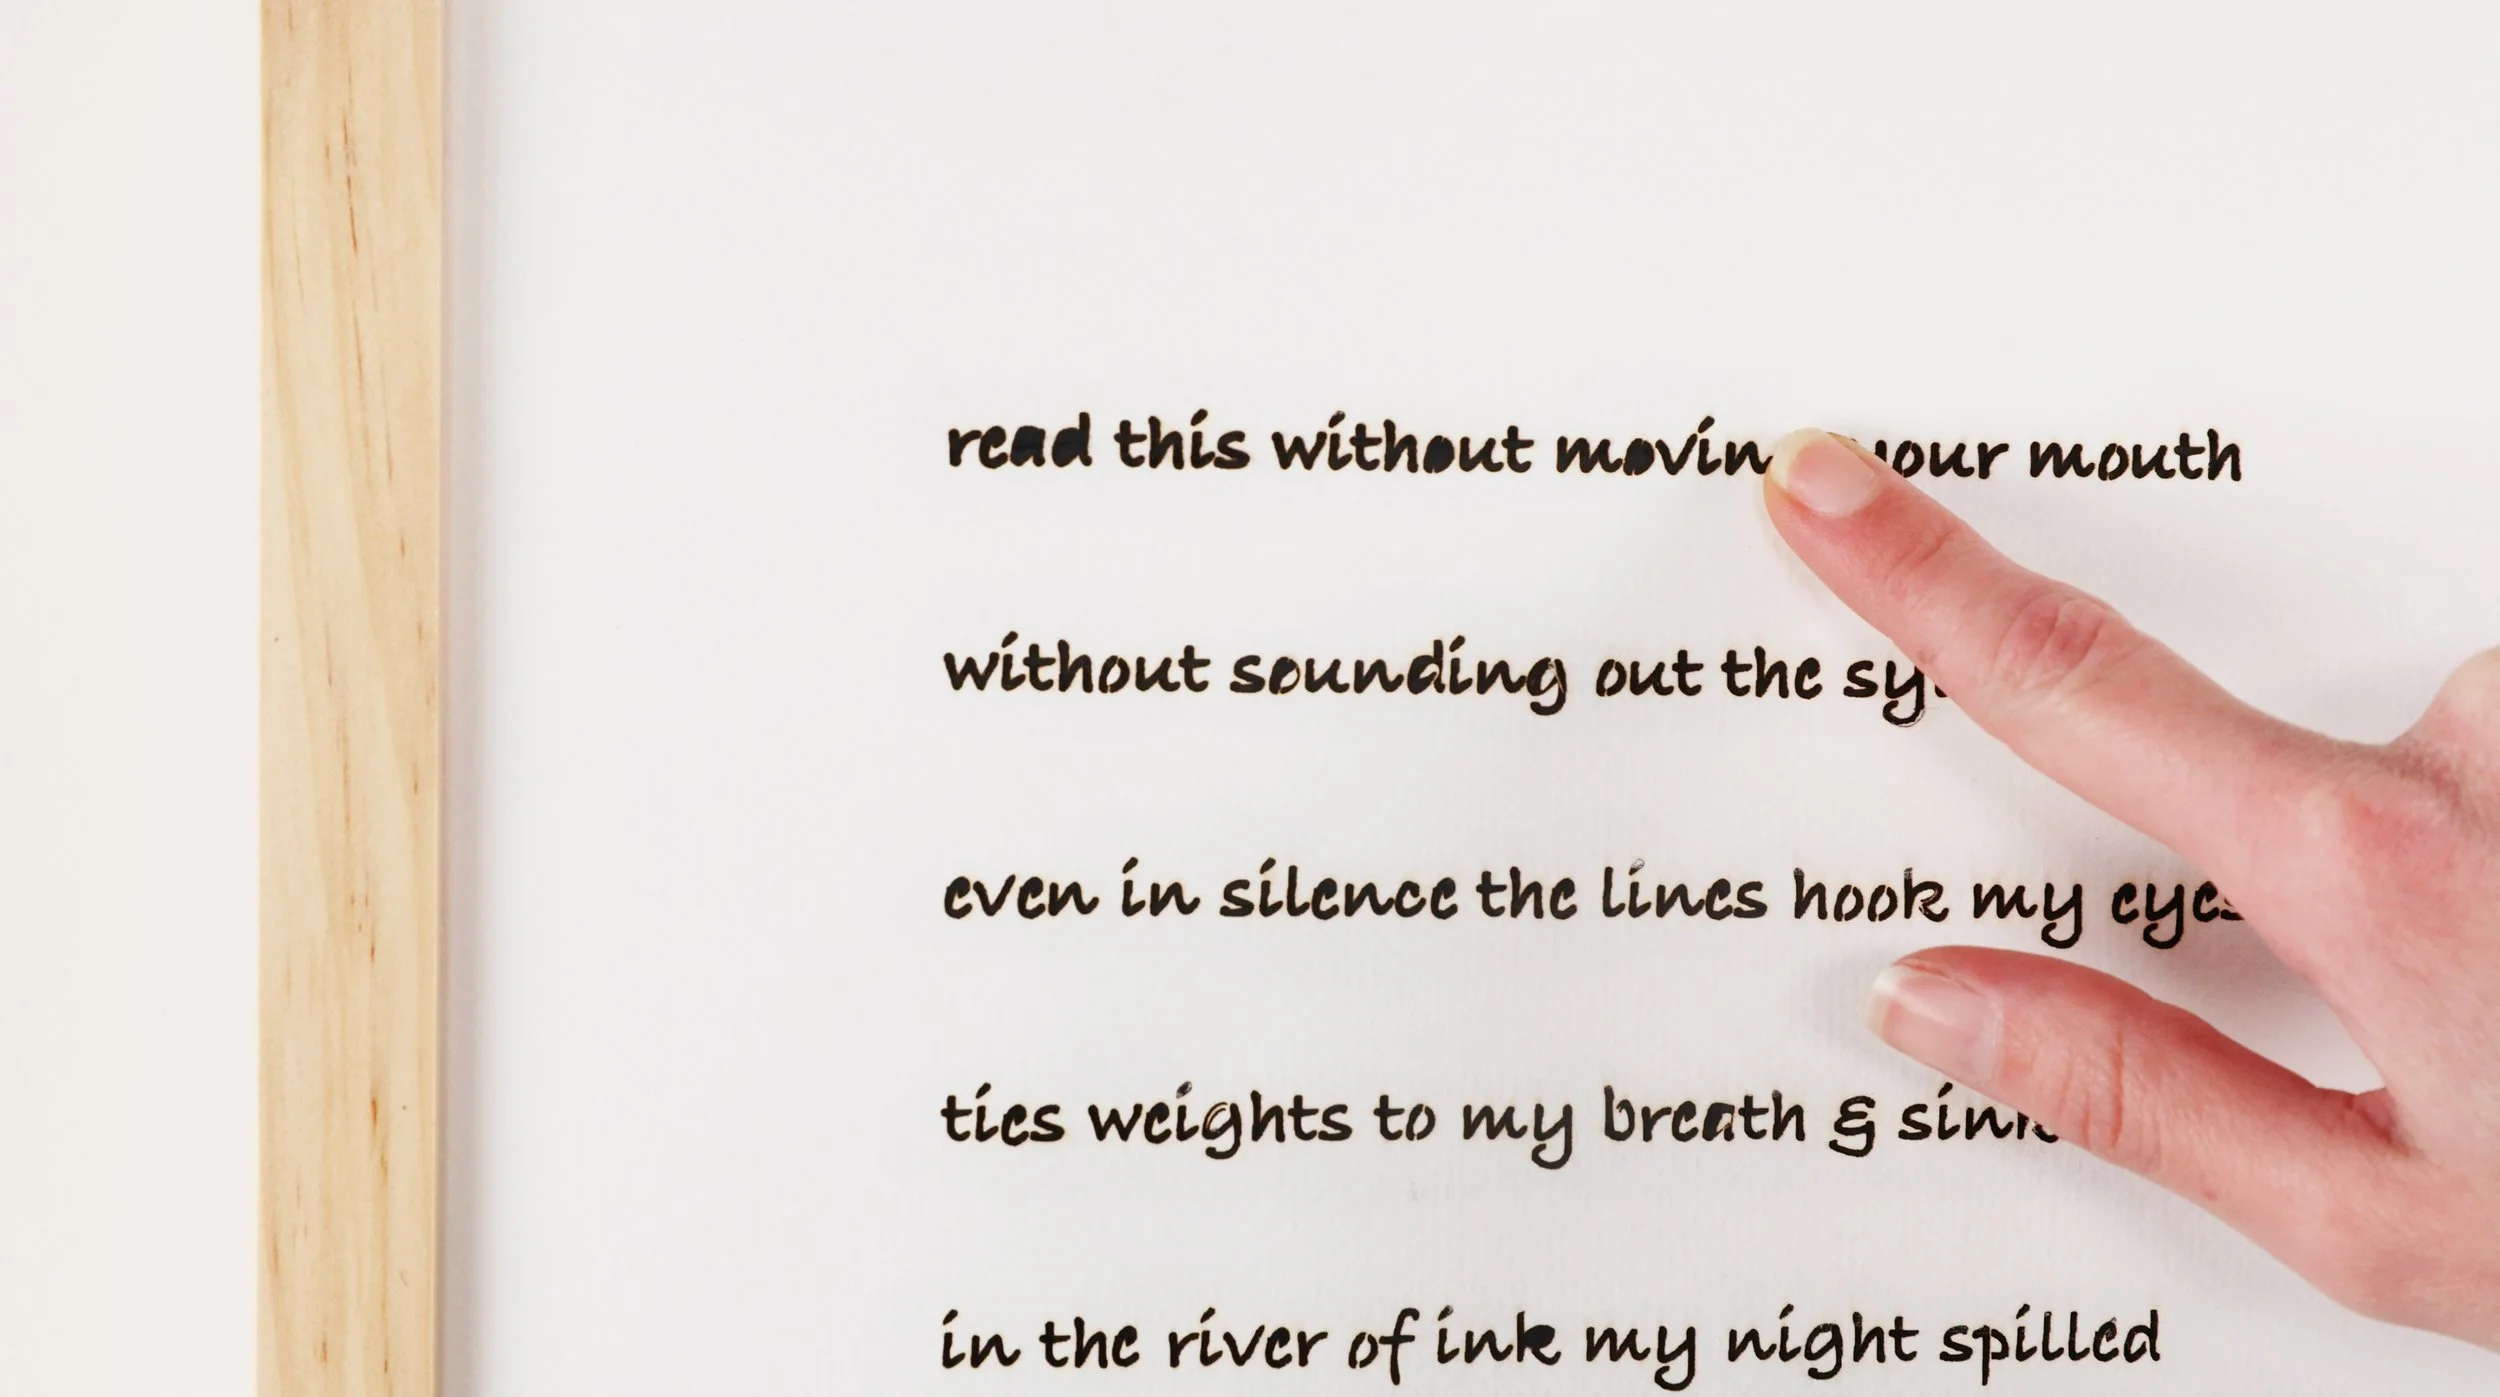 read this without movin your mouth
without sounding out the
even in silence the lines hook my eyes
ties weights to my breath & sink
in the river of ink my night spilled